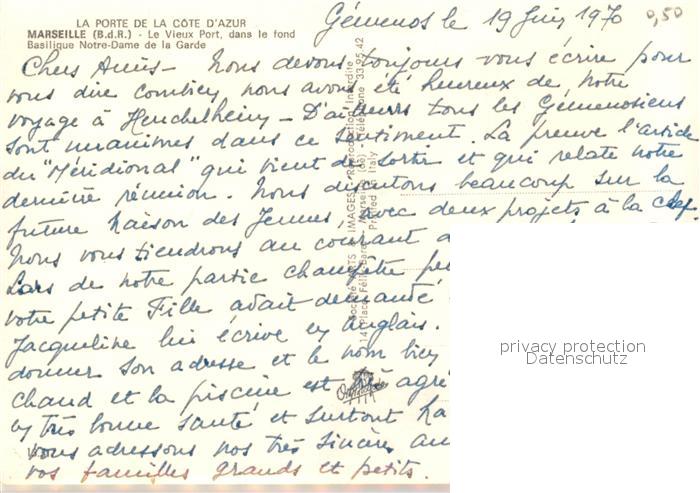 LA PORTE DE LA CÔTE D'AZUR
MARSEILLE (B.d.R.) - Le Vieux Port, dans le fond
Basilique Notre-Dame de la Garde
Gémenos le 19 Juin 1970
0,50
Chers Amis - Nous devons toujours vous écrire pour
vous dire combien nous avons été heureux de notre
voyage à Heuchelheim - D'ailleurs tous les Gémenosiens
sont unanimes dans ce sentiment. La preuve l'article
du "Méridional" qui vient de sortir et qui relate notre
dernière réunion. Nous discutons beaucoup sur la
future Maison des Jeunes, avec deux projets à la clef.
Nous vous tiendrons au courant
Lors de notre partie champêtre
votre petite Fille avait demandé
Jacqueline lui écrive en anglais.
donner son adresse et le nom bien
chaud et la piscine est très agré
en très bonne santé et surtout
vous adressons nos très sincères
vos familles grands et petits.
Société ARTS & IMAGES - Reproduction Interdite
14, Place Félix Baret - Marseille (6e) - Téléphone 33.95.42
Printed in Italy
privacy protection
Datenschutz